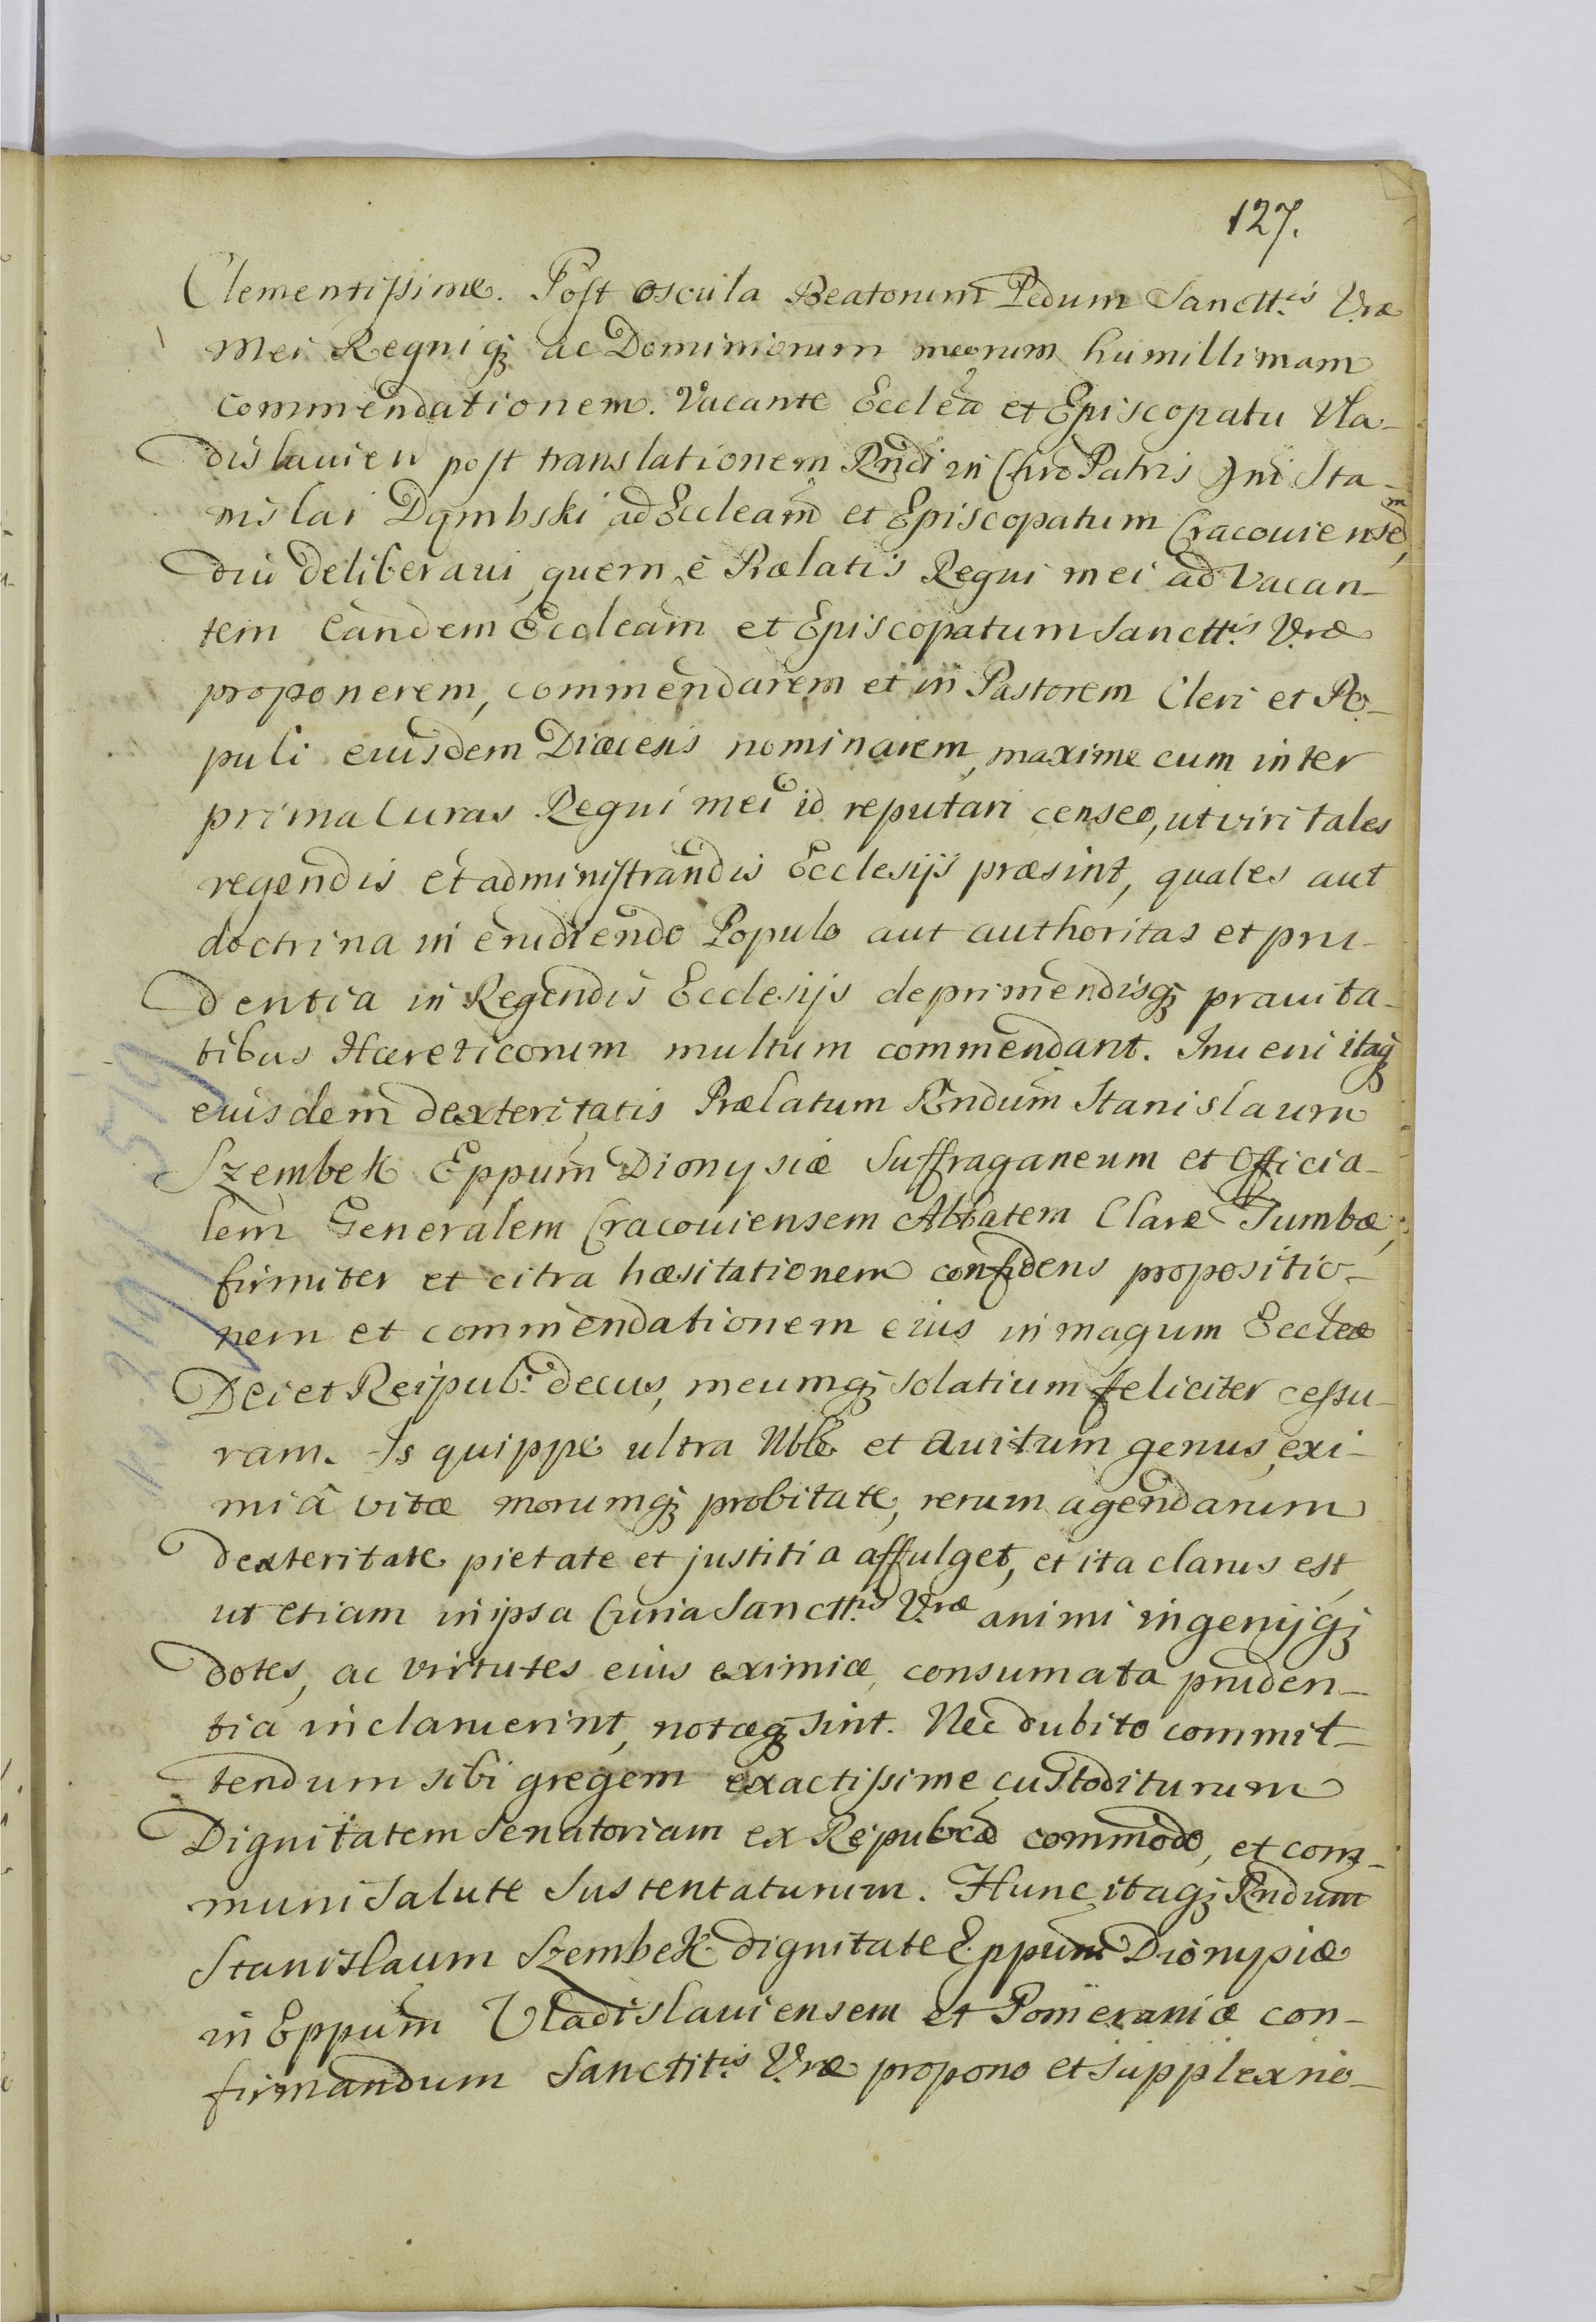 127.
Clementissime. Post oscula Beatorum Pedum Sanctt.is V.ræ
Mei Regniq; ac Dominiorum meorum humillimam
commendationem. Vacante Ecclea et Episcopatu Vla-
dislavien post translationem Rndi in Chro Patris Dni Sta-
nislai Dąmbski ad Eccleam et Episcopatum Cracoviensem,
diu deliberavi, quem è Prælatis Regni mei ad vacan-
tem eandem Eccleam et Episcopatum Sanctt.is V.ræ
proponerem, commendarem et in Pastorem Cleri et Po-
puli eiusdem Diæcesis nominarem, maxime cum inter
prima curas Regni mei id reputari censeo, ut viri tales
regendis et administrandis Ecclesijs præsint, quales aut
doctrina in erudiendo Populo aut authoritas et pru-
dentia in Regendis Ecclesijs deprimendisq; pravita-
tibus Hæreticorum multum commendant. Inveni itaq;
eiusdem dexteritatis Prælatum Rndum Stanislaum
Szembek Eppum Dionysiæ Suffraganeum et Officia-
lem Generalem Cracoviensem Abbatem Claræ Tumbæ,
firmiter et citra hæsitationem confidens propositio-
nem et commendationem eius in magum Eccleæ
Dei et Reipubl: decus, meumq; solatium feliciter cessu-
ram. Is quippe ultra Nble et avitum genus, exi-
miâ vitæ morumq; probitate, rerum agendarum
dexteritate pietate et justitia affulget, et ita clarus est,
ut etiam in ipsa Curia Sanctt.is V.ræ animi ingenijq;
dotes, ac virtutes eius eximiæ, consumata pruden-
tia inclaruerint, notæq; sint. Nec dubito commit-
tendum sibi gregem exactissime custoditurum
Dignitatem Senatoriam ex Reipublcæ commodo, et com-
muni salute sustentaturum. Hunc itaq; Rndum
Stanislaum Szembek dignitate Eppum Dionysiæ
in Eppum Vladislaviensem et Pomeraniæ con-
firmandum Sanctit.is V.ræ propono et supplex ro-